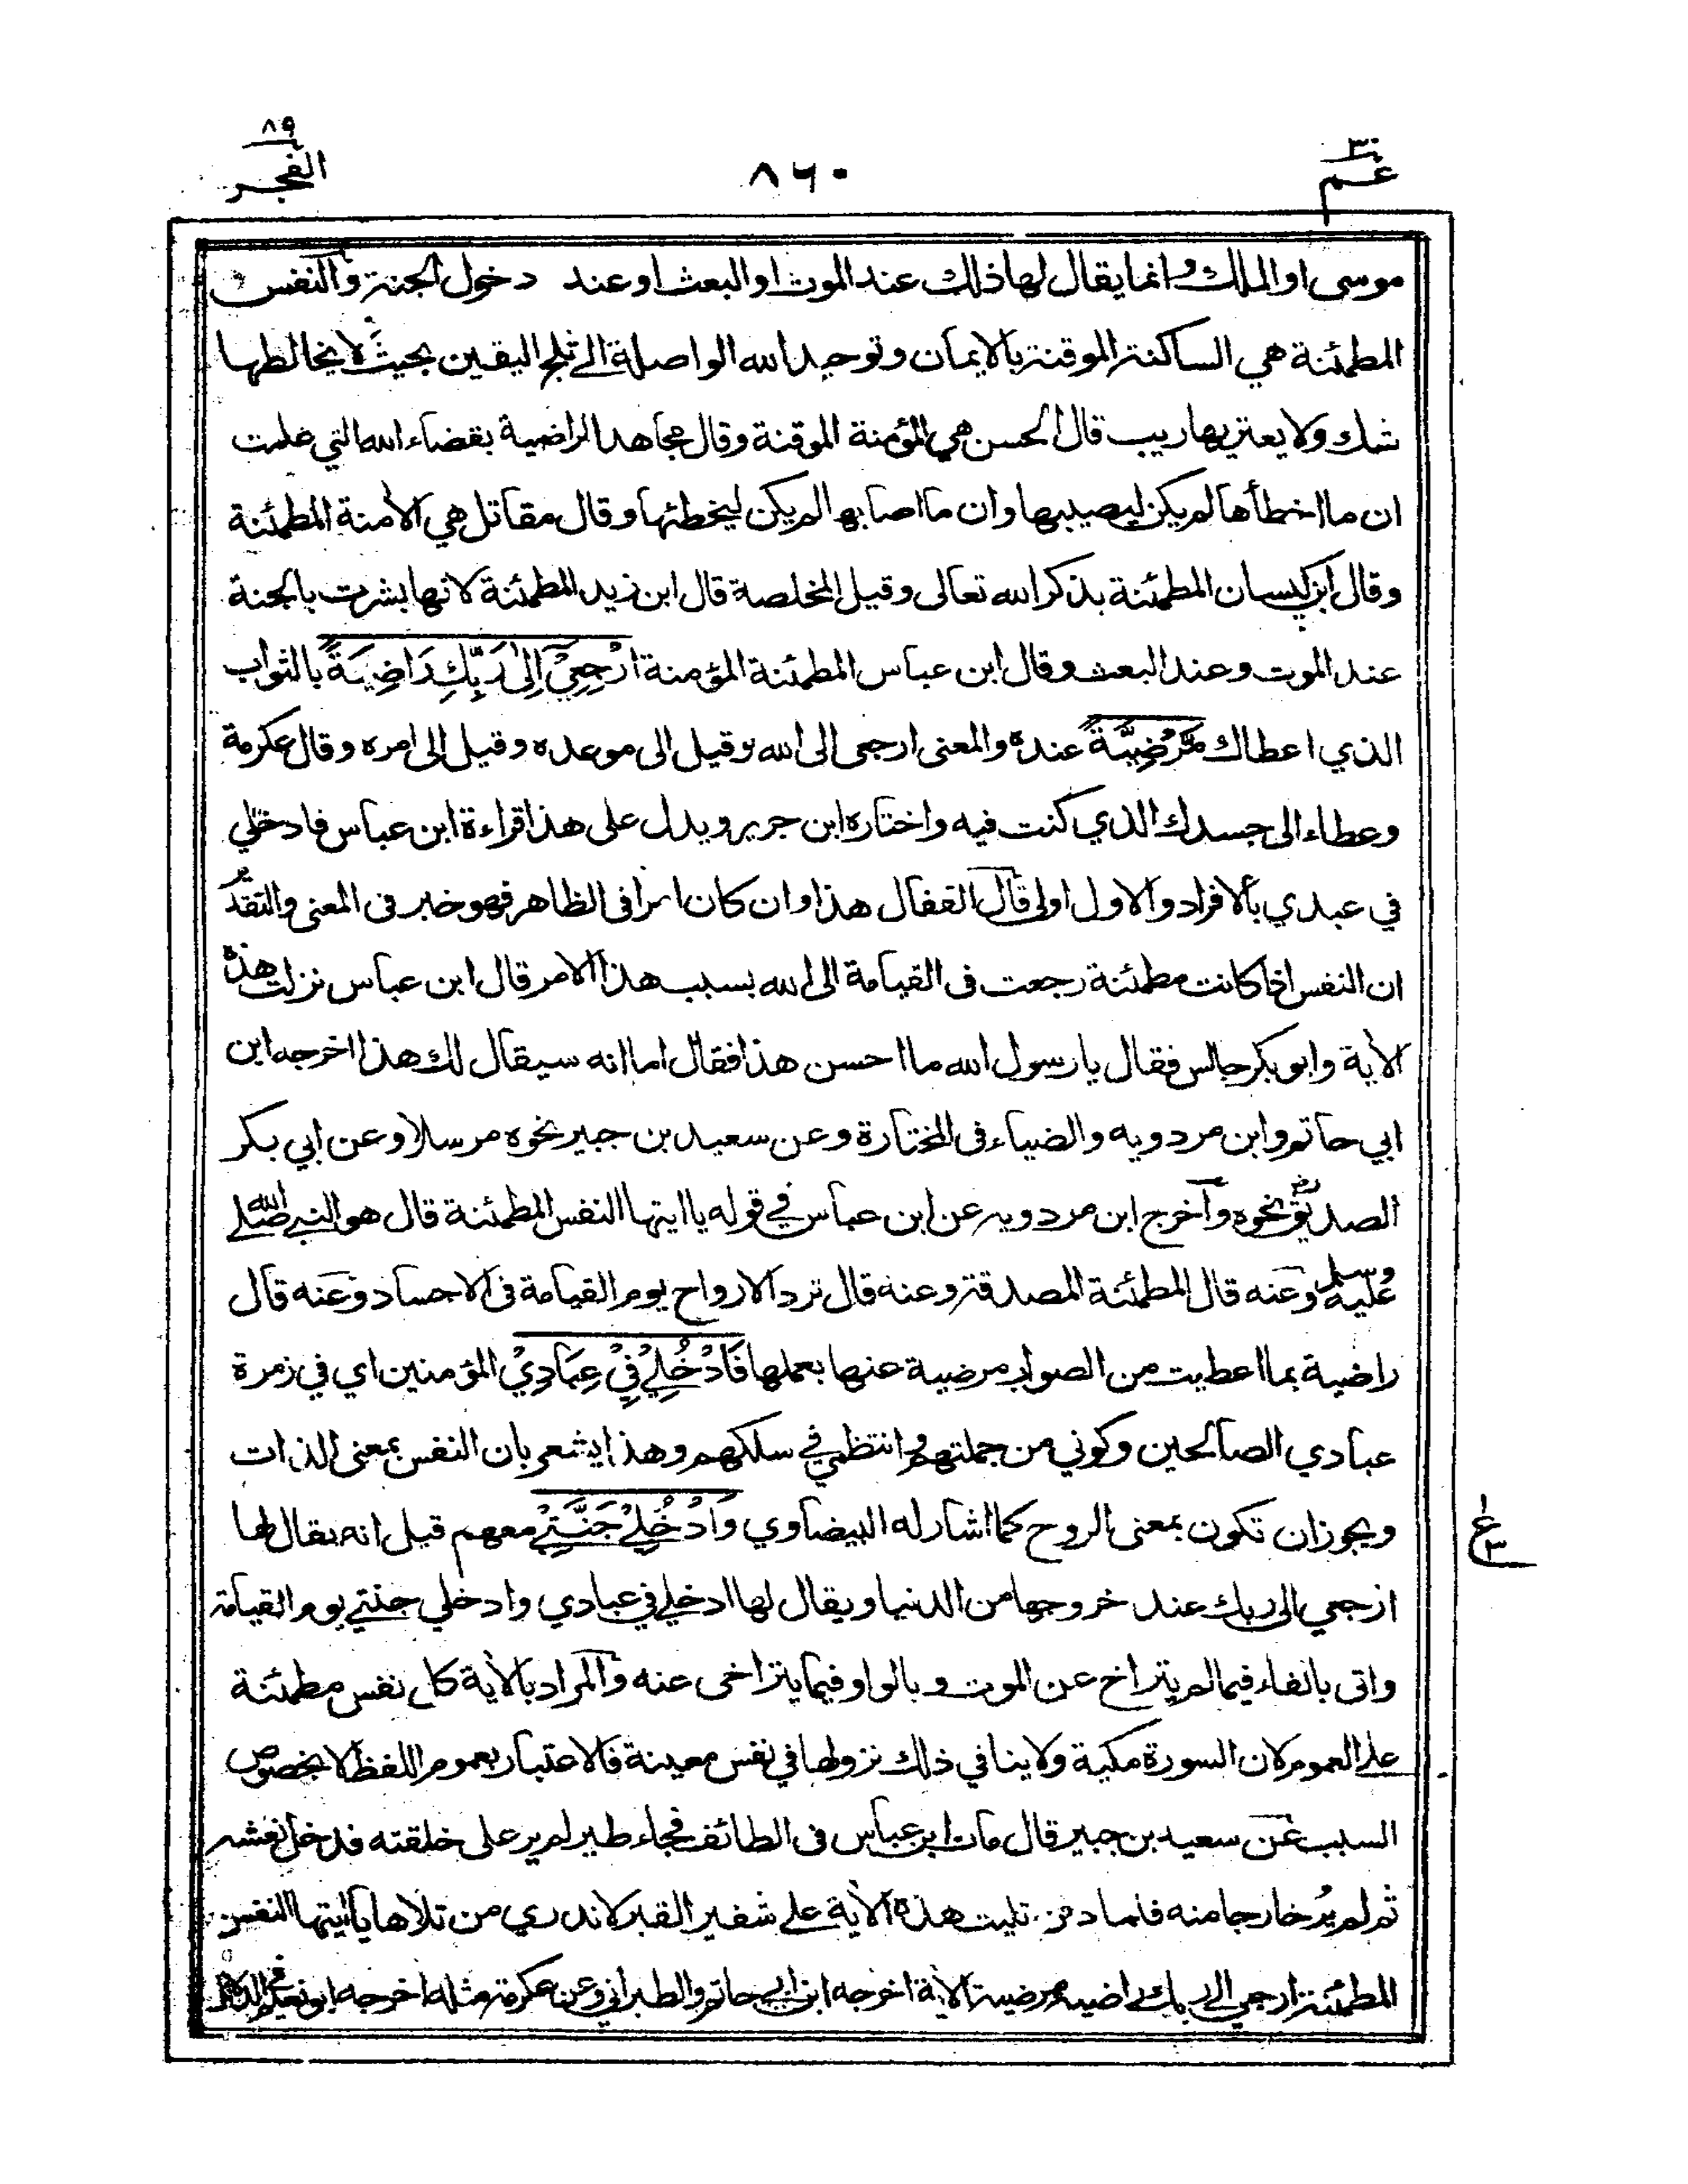 ٣٠
عم
٨٦٠
٨٩
الفجر
موسى او الملك وانما يقال لها ذلك عند الموت او البعث او عند دخول الجنة والنفس
المطمئنة هي الساكنة الموقنة بالايمان وتوحيد الله الواصلة الى ثلج اليقين بحيث لا يخالطها
شك ولا يعتريها ريب قال الحسن هي المؤمنة الموقنة وقال مجاهد الراضية بقضاء الله التي علمت
ان ما اخطأها لم يكن ليصيبها وان ما اصابها لم يكن ليخطئها وقال مقاتل هي الأمنة المطمئنة
وقال ابن كيسان المطمئنة بذكر الله تعالى وقيل المخلصة قال ابن زيد المطمئنة لانها بشرت بالجنة
عند الموت وعند البعث وقال ابن عباس المطمئنة المؤمنة ارْجِعِيْ اِلىٰ رَبِّكِ رَاضِيَةً بالثواب
الذي اعطاك مَرْضِيَّةً عنده والمعنى ارجعى الى الله وقيل الى موعده وقيل الى امره وقال عكرمة
وعطاء الى جسدك الذي كنت فيه واختاره ابن جرير ويدل على هذا قراءة ابن عباس فادخلي
في عبدي بالافراد والاول اولى قال القفال هذا وان كان امرا فى الظاهر فهو خبر فى المعنى والتقدير
ان النفس اذا كانت مطمئنة رجعت فى القيامة الى الله بسبب هذا الامر قال ابن عباس نزلت هذه
الأية وابو بكر جالس فقال يا رسول الله ما احسن هذا فقال اما انه سيقال لك هذا اخرجه ابن
ابي حاتم وابن مردويه والضياء فى المختارة وعن سعيد بن جبير نحوه مرسلا وعن ابي بكر
الصديق رض نحوه وأخرج ابن مردويه عن ابن عباس في قوله يا ايتها النفس المطمئنة قال هو النبي صلى الله
عليه وسلم وعنه قال المطمئنة المصدقة وعنه قال ترد الارواح يوم القيامة فى الاجساد وعنه قال
راضية بما اعطيت من الصواب مرضية عنها بعملها فَادْخُلِيْ فِيْ عِبَادِيْ المؤمنين اي في زمرة
عبادي الصالحين وكوني من جملتهم وانتظمي في سلكهم وهذا يشعر بان النفس بمعنى الذات
ويجوز ان تكون بمعنى الروح كما اشار له البيضاوي وَادْخُلِيْ جَنَّتِيْ معهم قيل انه يقال لها
ارجعي الى ربك عند خروجها من الدنيا ويقال لها ادخلي في عبادي وادخلي جنتي يوم القيامة
واتى بالفاء فيما لم يتراخ عن الموت وبالواو فيما يتراخى عنه والمراد بالأية كل نفس مطمئنة
على العموم لان السورة مكية ولا ينافي ذلك نزولها في نفس معينة فالاعتبار بعموم اللفظ لا بخصوص
السبب عن سعيد بن جبير قال مات ابن عباس فى الطائف فجاء طير لم ير على خلقته فدخل نعشه
ثم لم يُر خارجا منه فلما دفن تليت هذه الأية على شفير القبر لا ندري من تلاها يا ايتها النفس
المطمئنة ارجعي الى ربك راضية مرضية الأية اخرجه ابن ابي حاتم والطبراني وعن عكرمة مثله اخرجه ابو نعيم في الدلائل
ع
٣